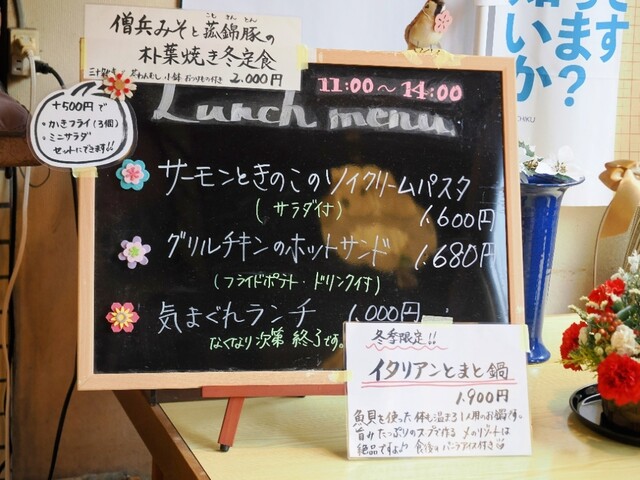 こも きん とん
僧兵みそと菰錦豚の
朴葉焼き冬定食
茶わんむし 小鉢 おつけもの付き 2,000円
+500円で
・かきフライ(3個)
・ミニサラダ
セットにできます!!
11:00～14:00
Lunch menu
サーモンときのこのソイクリームパスタ
(サラダ付) 1,600円
グリルチキンのホットサンド 1,680円
(フライドポテト・ドリンク付)
気まぐれランチ 1,000円
なくなり次第 終了です。
冬季限定!!
イタリアンとまと鍋
1,900円
魚貝を使った体も温まる1人用のお鍋です。
旨みたっぷりのスープで作る〆のリゾットは
絶品ですよ♪ 食後のバニラアイス付き
すます
ま?
いか